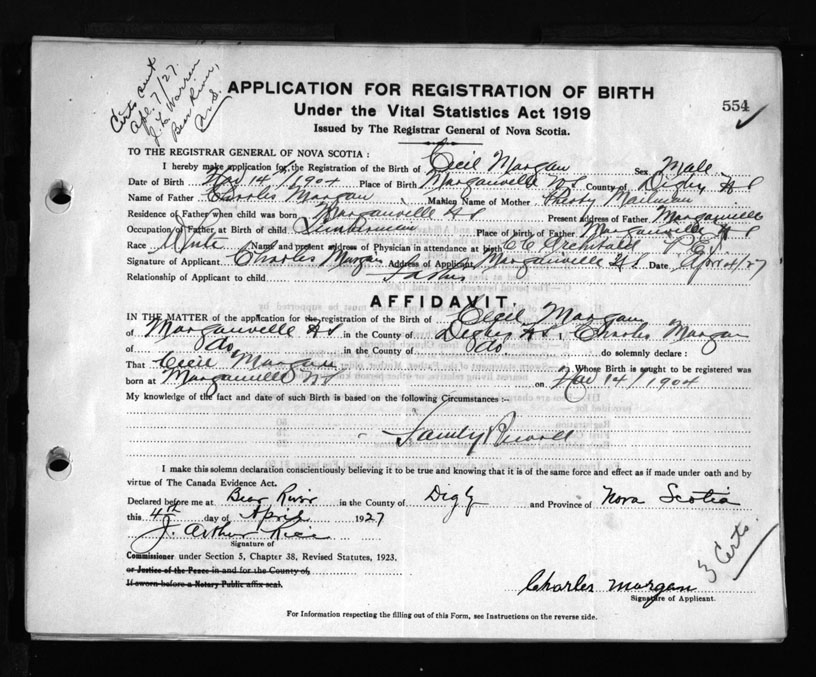 Certs sent
Apl. 7/27.
Warren
Bear River,
N.S.
APPLICATION FOR REGISTRATION OF BIRTH
554
Under the Vital Statistics Act 1919
Issued by The Registrar General of Nova Scotia.
TO THE REGISTRAR GENERAL OF NOVA SCOTIA :
I hereby make application for the Registration of the Birth of Cecil Morgan Sex Male
Date of Birth Nov 14/1904 Place of Birth Morganville NS County of Digby N S
Name of Father Charles Morgan Maiden Name of Mother Mailman
Residence of Father when child was born Morganville NS Present address of Father Morganville
Occupation of Father at Birth of child Lumberman Place of birth of Father Morganville N S
Race White Name and present address of Physician in attendance at birth Archibald P.E.I.
Signature of Applicant Charles Morgan Address of Applicant Morganville NS Date April 4/27
Relationship of Applicant to child Father
AFFIDAVIT.
IN THE MATTER of the application for the registration of the Birth of Cecil Morgan
of Morganville NS in the County of Digby NS, Charles Morgan
of do in the County of do do solemnly declare :
That Cecil Morgan Whose Birth is sought to be registered was
born at Morganville NS on Nov 14/1904
My knowledge of the fact and date of such Birth is based on the following Circumstances :-
Family Record
I make this solemn declaration conscientiously believing it to be true and knowing that it is of the same force and effect as if made under oath and by
virtue of The Canada Evidence Act.
Declared before me at Bear River in the County of Digby and Province of Nova Scotia
this 4th day of April 1927
J. Arthur Rice
Signature of
Commissioner under Section 5, Chapter 38, Revised Statutes, 1923.
or Justice of the Peace in and for the County of,
If sworn before a Notary Public affix seal.
3 Certs.
Charles Morgan
Signature of Applicant.
For Information respecting the filling out of this Form, see Instructions on the reverse side.